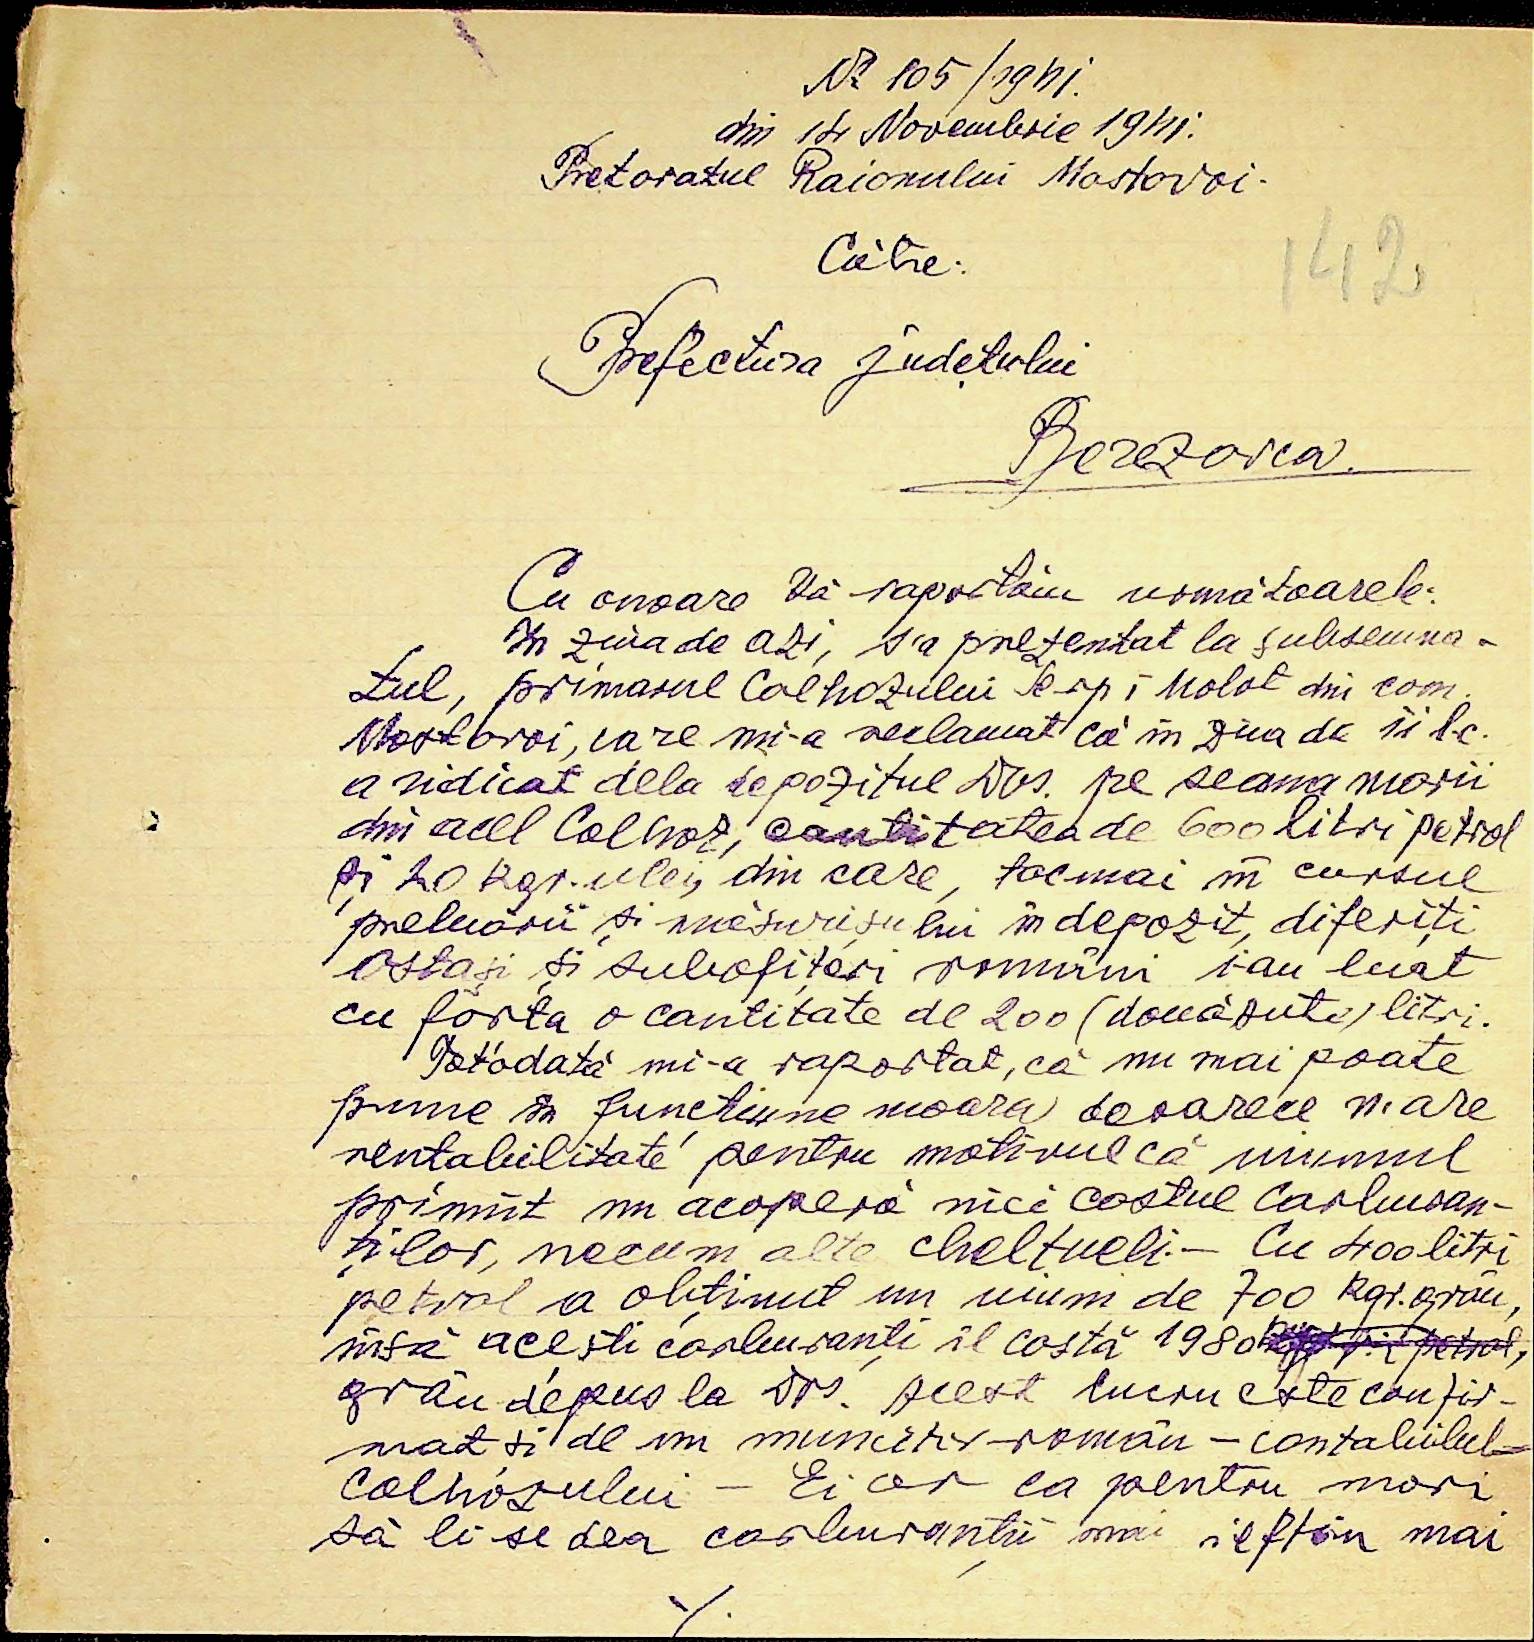 Nr 105/1941.
din 14 Novembrie 1941.
Pretoratul Raionului Mostovoi.
142
Către:
Prefectura județului
Berezovca.
Cu onoare Vă raportăm următoarele:
In ziua de azi, s'a prezentat la subsemna-
tul, primarul Colhozului Serp i Molot din com.
Mostovoi, care mi-a reclamat că în ziua de 11 l.c.
a ridicat dela depozitul Dvs. pe seama morii
din acel Colhoz, cantitatea de 600 litri petrol
și 20 kgr. ulei, din care, tocmai în cursul
preluării și măsurișului în depozit, diferiți
ostași și subofițeri români i-au luat
cu forța o cantitate de 200 (douăsute) litri.
Totodată mi-a raportat, că nu mai poate
pune în funcțiune moara deoarece n'are
rentabilitate pentru motivul că uiumul
primit nu acoperă nici costul carburan-
ților, necum alte cheltueli.- Cu 400 litri
petrol a obținut un uium de 700 kgr. grâu,
însă acești carburanți îl costă 1980
grâu depus la Dvs. Acest lucru este confir-
mat și de un muncitor român - contabilul
Colhozului - Ei cer ca pentru mori
să li se dea carburanții mai ieftin mai
./.